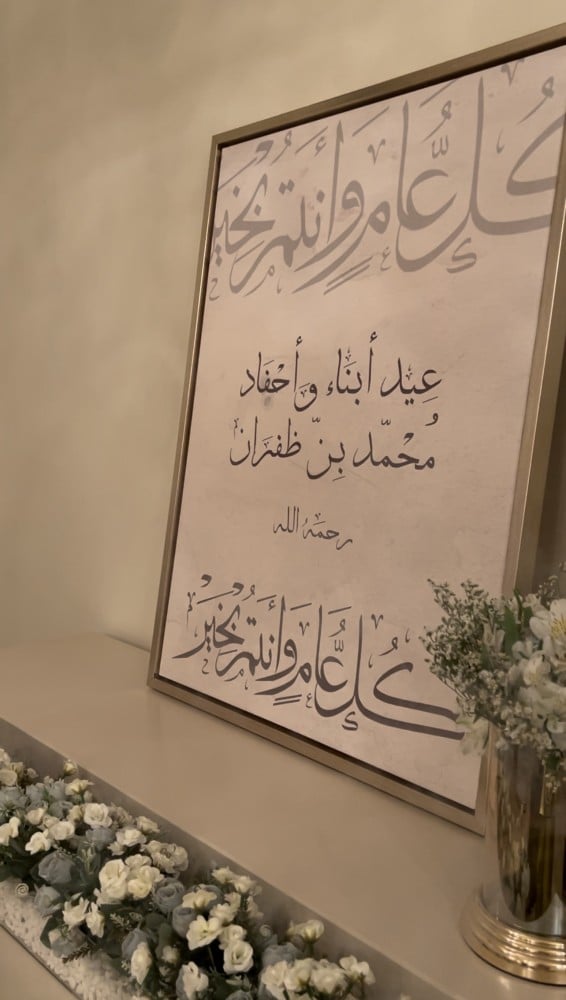 كل عام وأنتم بخير
عيد أبناء وأحفاد
محمد بن ظفران
رحمه الله
كل عام وأنتم بخير